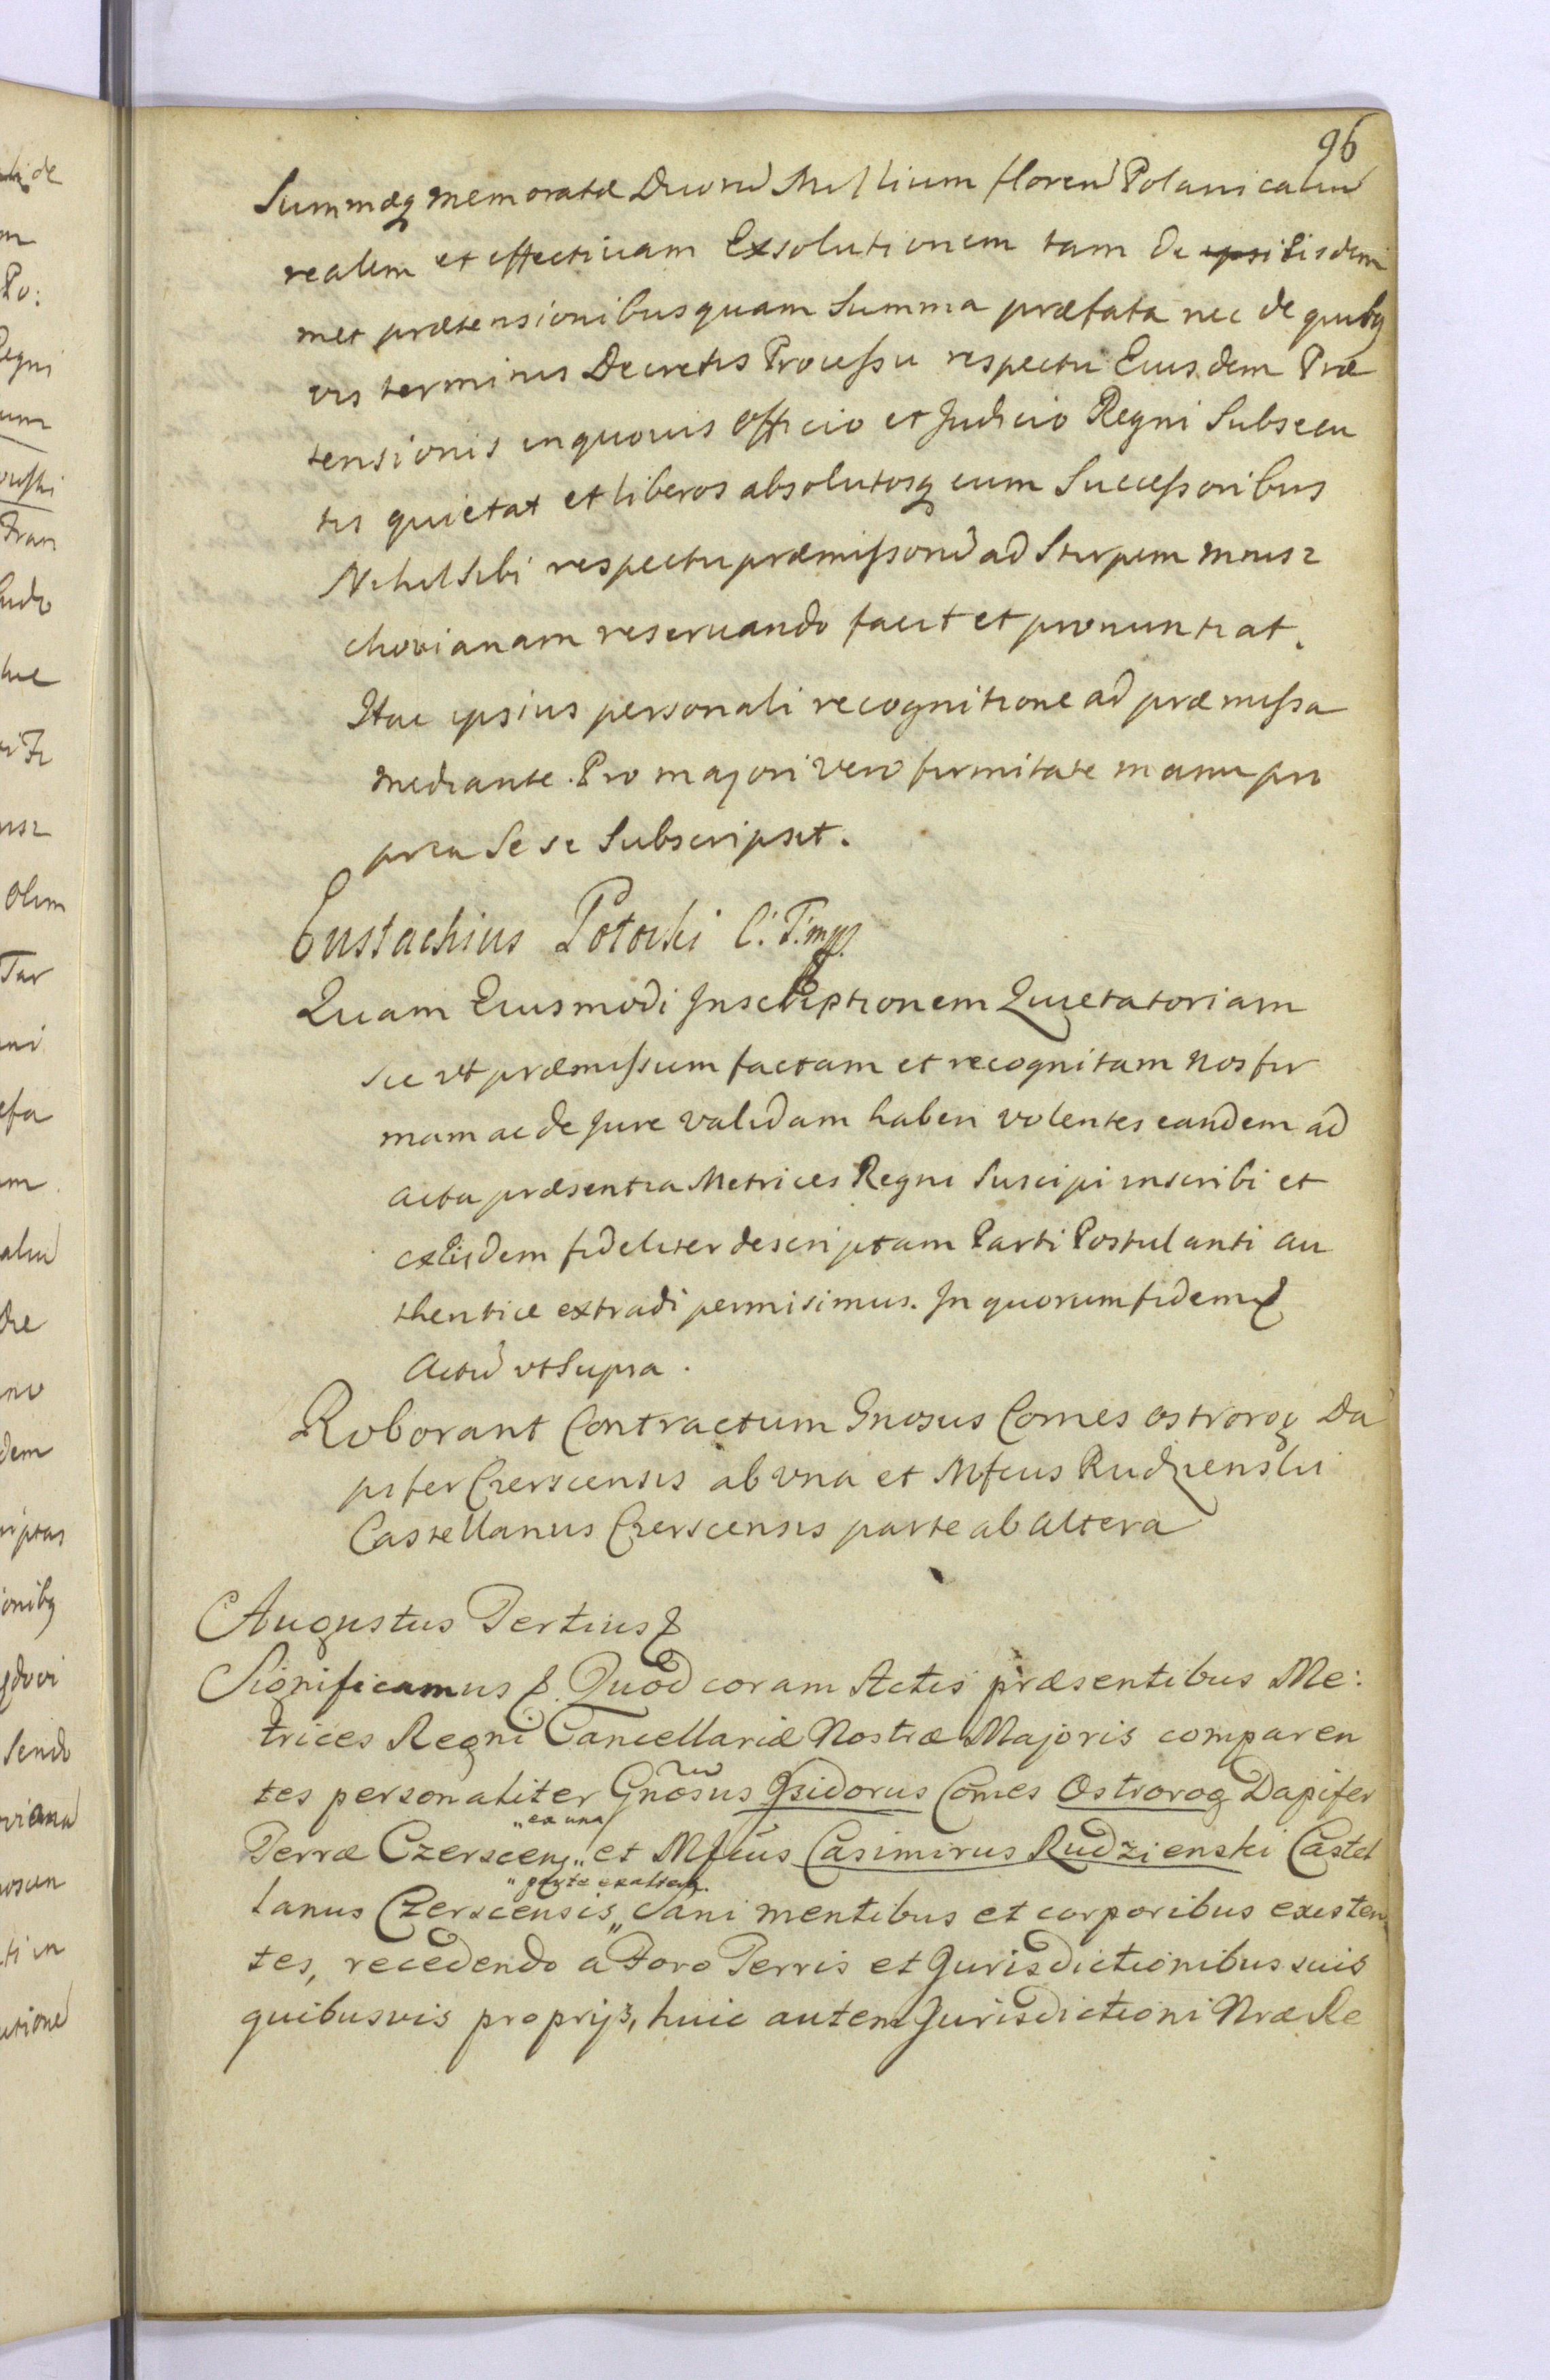 96
Summæq memoratæ Duorũ Millium florenũ Polonicaliũ
realem et effectivam Exsolutionem tam de ipsi Eisdem
met prætensionibus quam Summa præfata nec de quibq
vis terminis Decretis Processu respectu Eiusdem Præ
tensionis in quovis officio et Judicio Regni Subsecu
tis quietat et liberos absolutosq cum Successoribus
Nihil sibi respectu præmissorũ ad Stirpem Mnisz
chovianam reservando facit et pronuntiat.
Hac ipsius personali recognitione ad præmissa
mediante. Pro majori vero firmitate manu pro
pria Se se Subscripsit.
Eustachius Potocki C. T. mpp.
Quam Eiusmodi Inscriptionem Quietatoriam
sic ut præmissum factam et recognitam nos fir
mam ac de Jure validam haberi volentes eandem ad
acta præsentia Metrices Regni Suscipi inscribi et
ex Eisdem fideliter descriptam Parti Postulanti au
thentice extradi permisimus. In quorum fidem &
Actũ ut Supra.
Roborant Contractum Gnosus Comes Ostrorog Da
pifer Czerscensis ab una et Mfcus Rudzienski
Castellanus Czerscensis parte ab altera
Augustus Tertius &
Significamus &. Quod coram Actis præsentibus Me:
trices Regni Cancellariæ Nostræ Majoris comparen
tes personaliter Gnosus Isidorus Comes Ostrorog Dapifer
"ex una
Terræ Czerscen: " et Mfcus Casimirus Rudzienski Castel
" parte ex altera.
lanus Czerscensis " Sani mentibus et corporibus existen
tes, recedendo a Foro Terris et Jurisdictionibus suis
quibusvis proprijs, huic autem Jurisdictioni Nræ Re